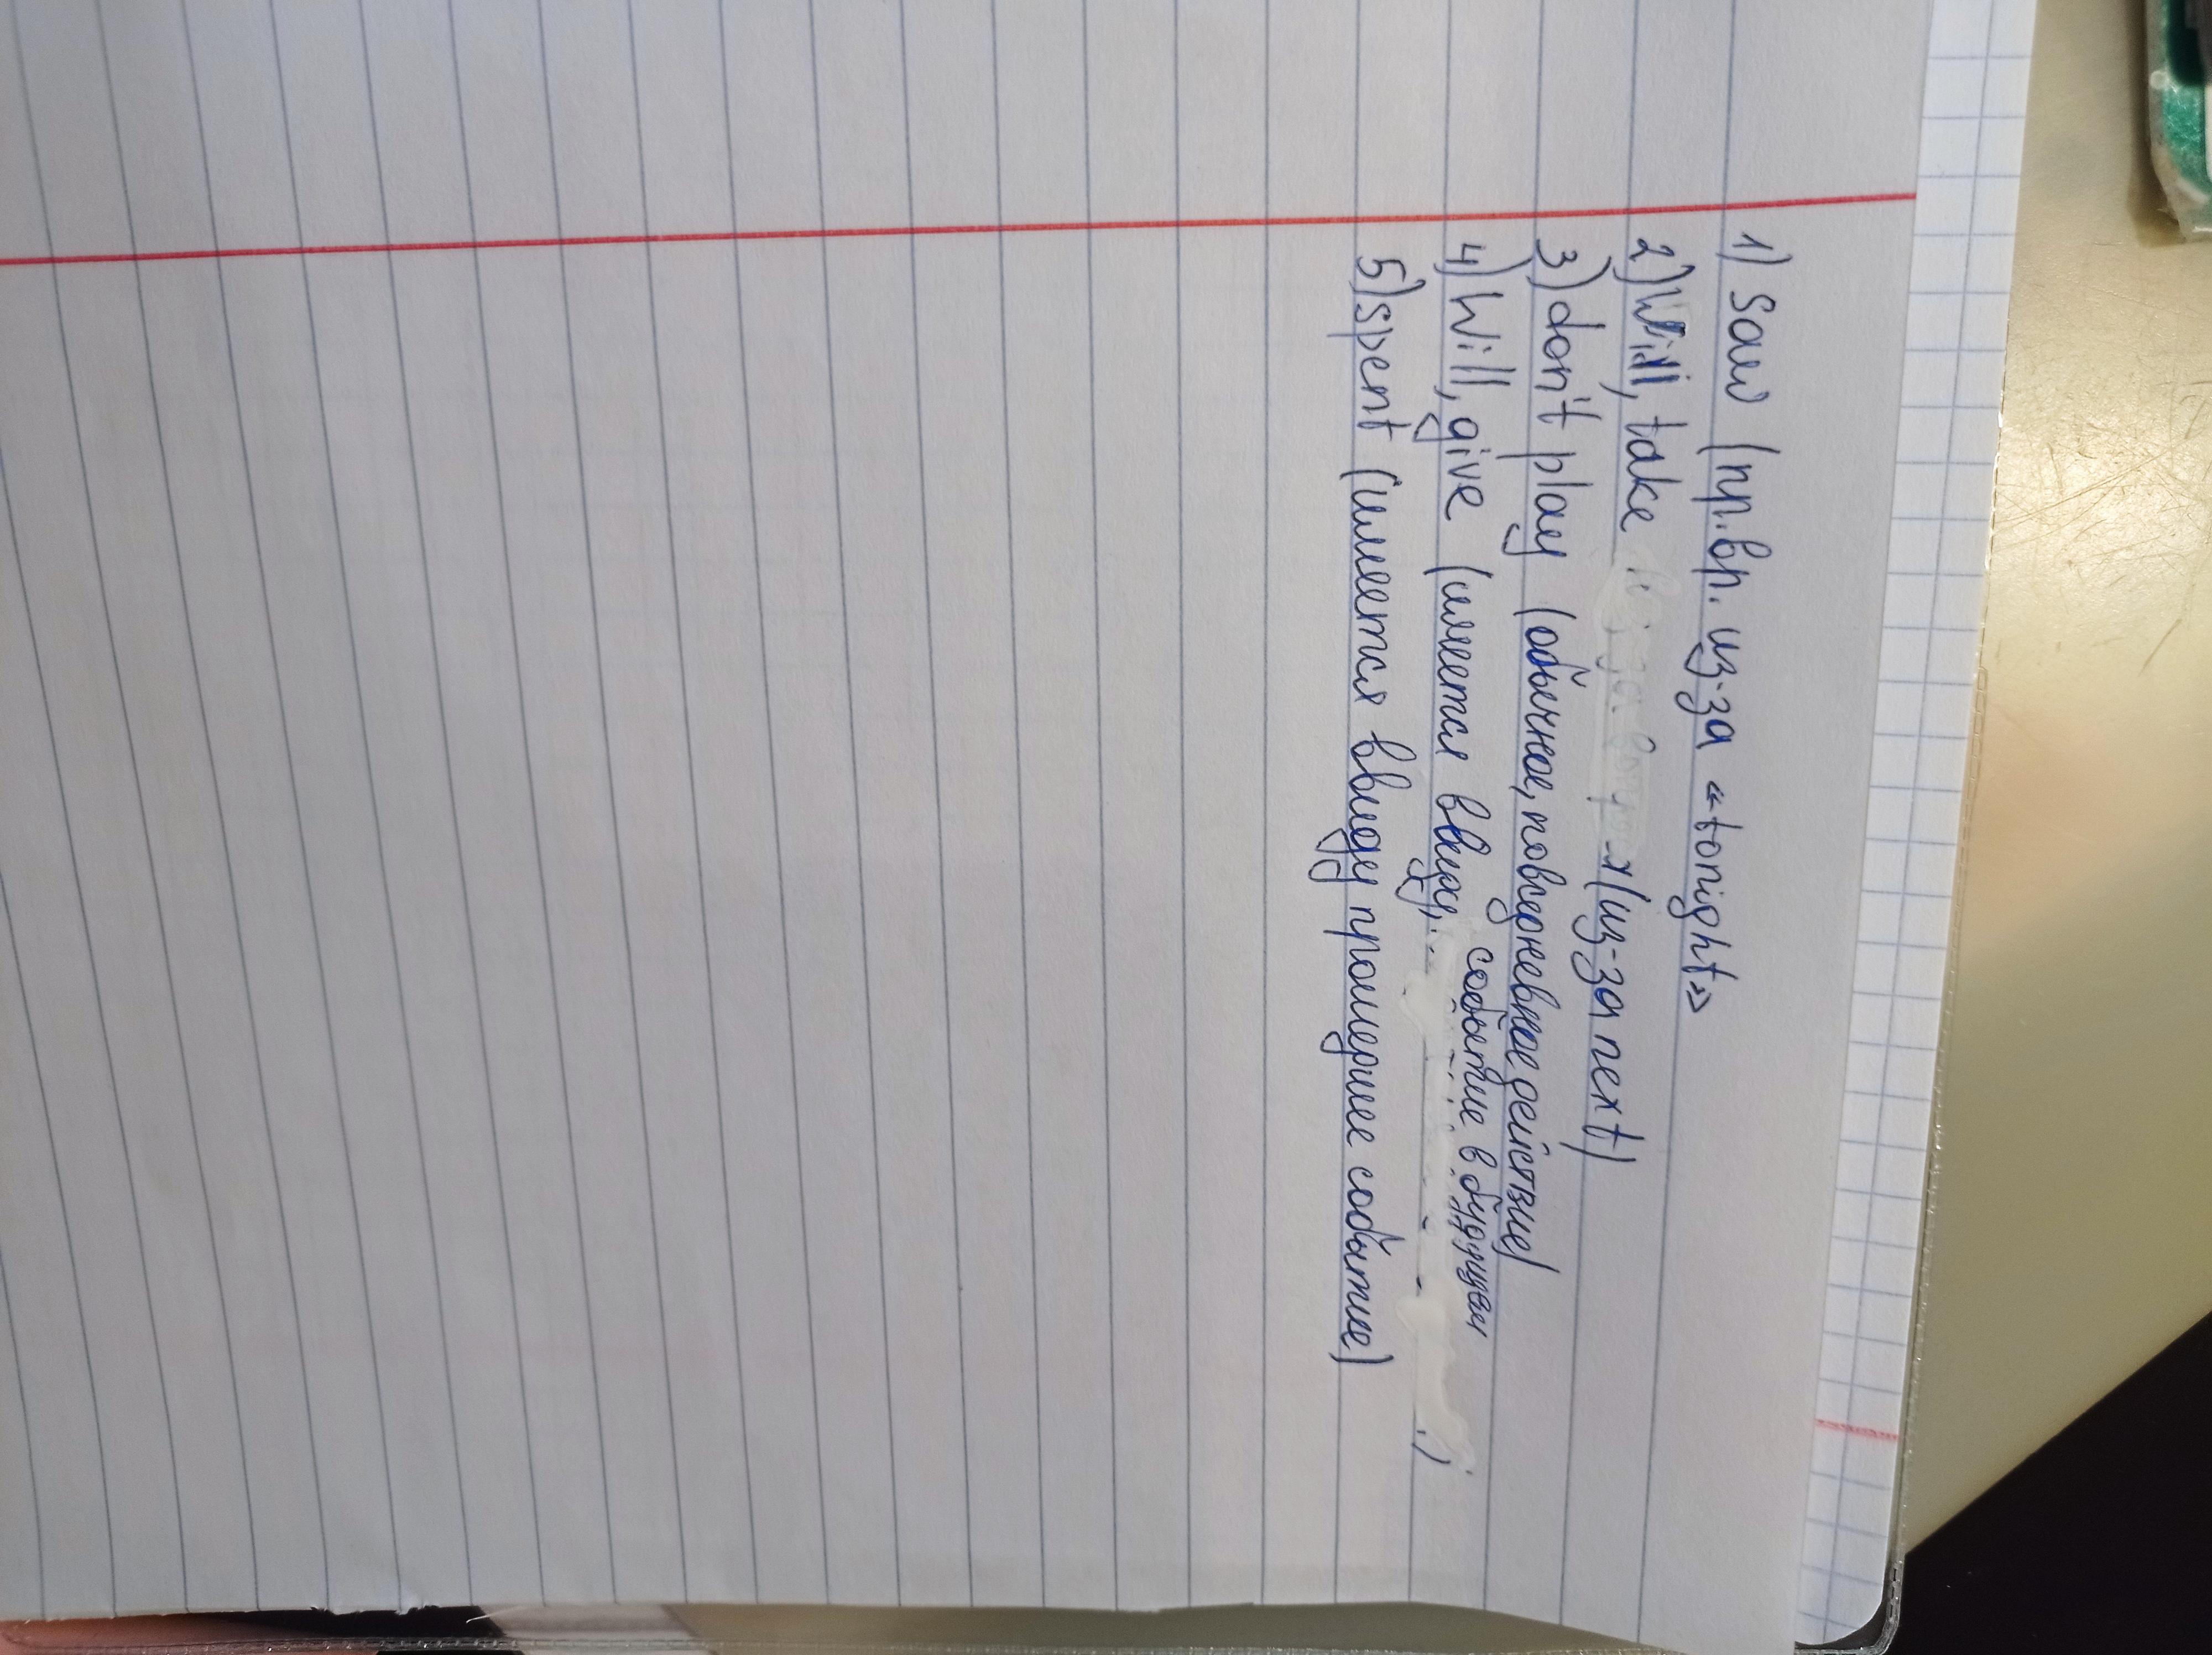 1) Saw (пр. вр. из-за «tonight»
2) Will, take (из-за next)
3) don't play (обычное, повседневное действие)
4) Will, give (имеется ввиду событие в будущем )
5) spent (имеется ввиду прошедшее событие)